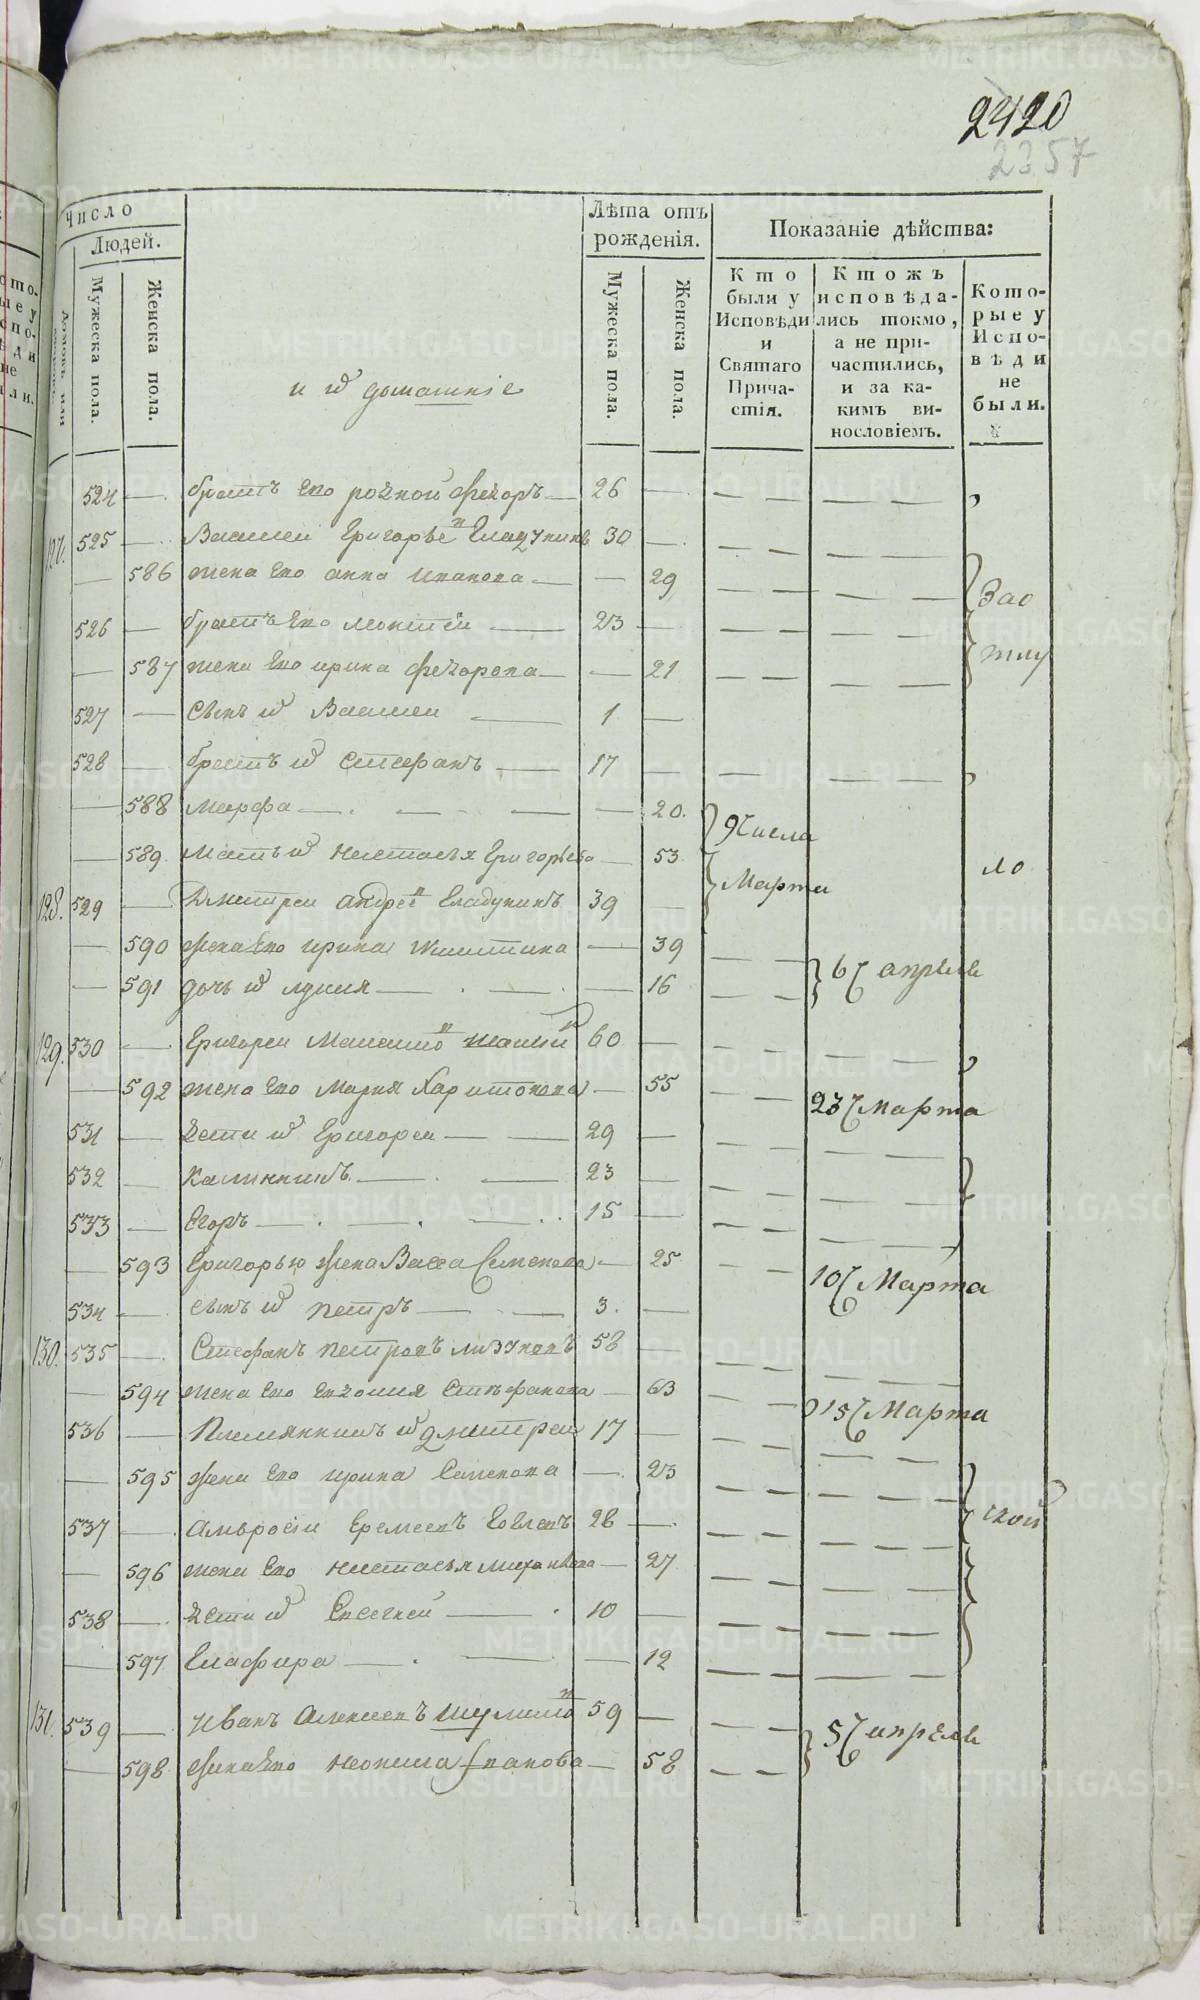 2420
2357
Число
Людей.
Мужеска пола.
Женска пола.
и их домашніе
Лѣта отъ рожденія.
Мужеска пола.
Женска пола.
Показаніе дѣйства:
Кто были у Исповѣди и Святаго Причастія.
Ктожъ исповѣдались токмо, а не причастились, и за какимъ винословіемъ.
Которые у Исповѣди не были.
524 — братъ его родной Федоръ — 26 —
127. 525 — Василей Григорьев 30 —
— 586 жена его анна иванова — — 29
Зао
526 — братъ его — 23 —
— 587 жена его ирина федорова — — 21
527 — сынъ их Василей — 1 —
528 — братъ их Стефанъ — 17 —
— 588 марфа — — 20.
9 Числа
— 589 мать их настасья Григорьева — 53
Марта
ло
128. 529 — Дмитреи андреев 39 —
— 590 жена его ирина — 39
6 апреля
— 591 дочь их — — 16
129. 530 — Григореи 60 —
— 592 жена его Марья Харитонова — 55
23 Марта
531 — дети их Григореи — 29 —
532 — Калинникъ — 23 —
533 — Егоръ — 15 —
— 593 Григорью жена Васса Семенова — 25
10 Марта
534 — сынъ их петръ — 3. —
130. 535 — Стефанъ петровъ 58 —
— 594 жена его Стефанова — 63
15 Марта
536 — Племянникъ их дмитреи 17 —
— 595 жена его ирина Семенова — 23
537 — Амвросіи Еремеевъ 28 —
ской
— 596 жена его настасья — 27
538 — дети их Евсегнеи — 10 —
— 597 Глафира — — 12
131. 539 — Иванъ Алексеевъ 59 —
5 апреля
— 598 жена его Иванова — 58
METRIKI.GASO-URAL.RU